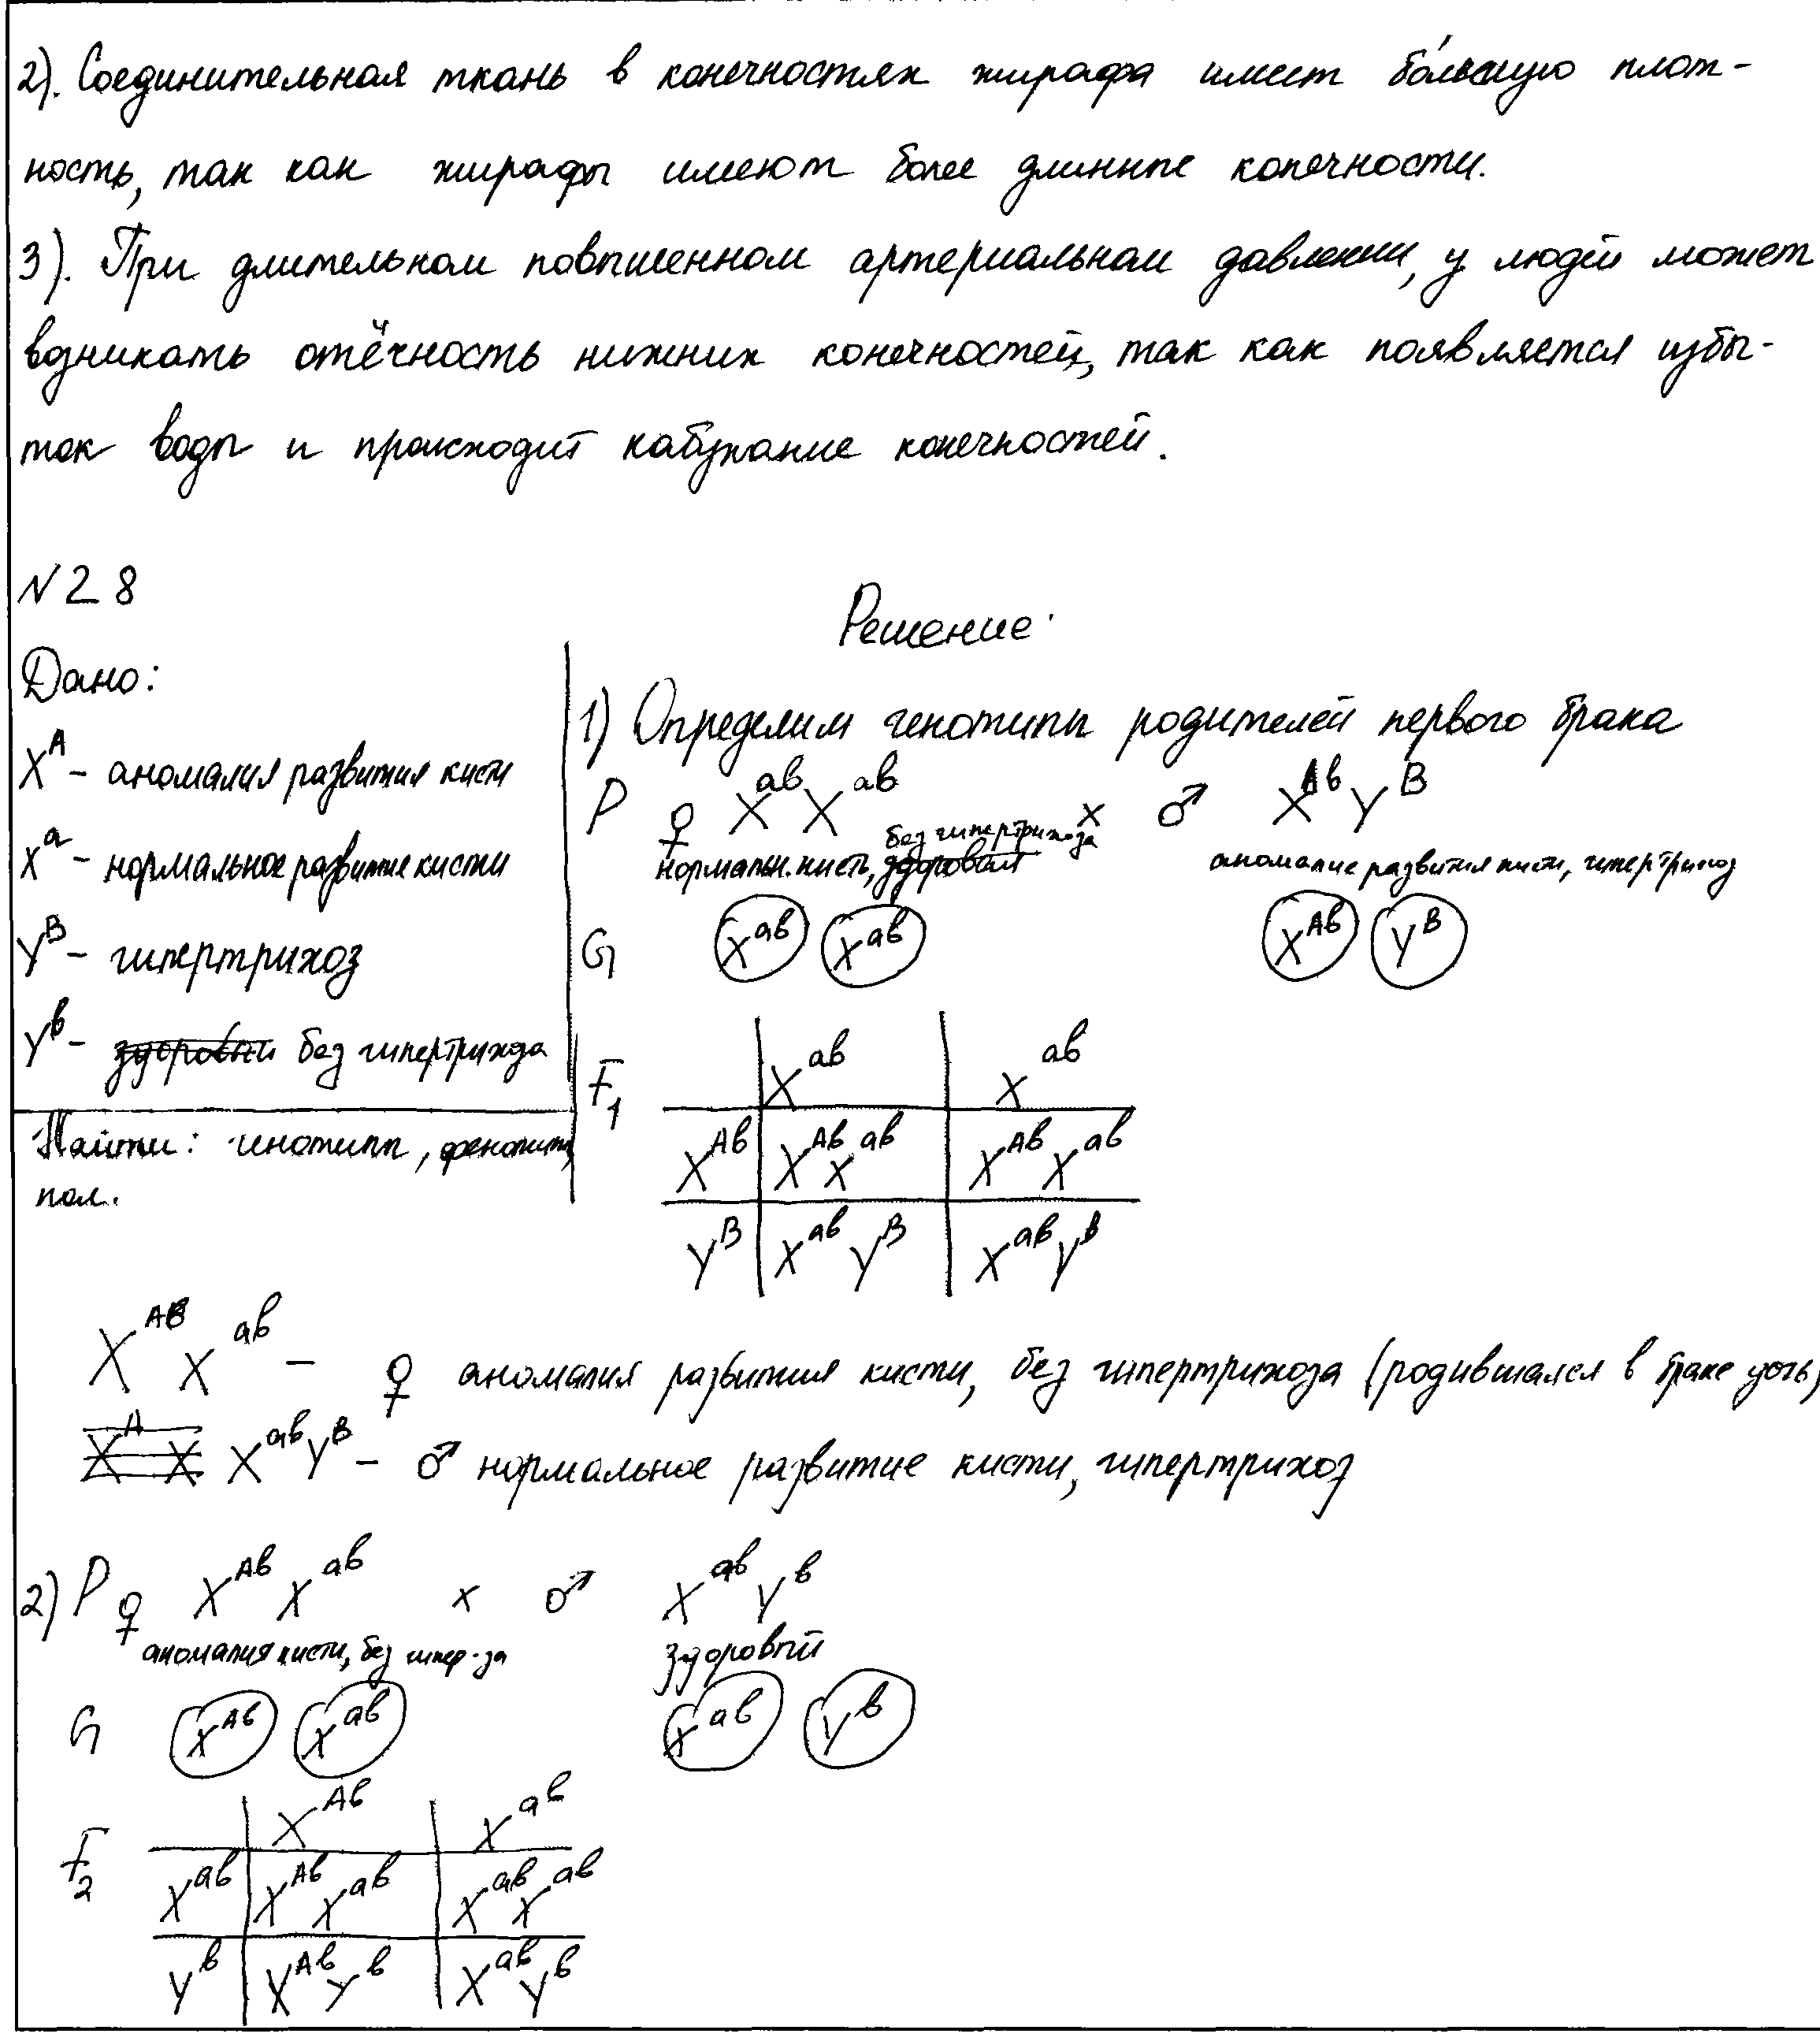 2). Соединительная ткань в конечностях жирафа имеет бо́льшую плот-
ность, так как жирафы имеют более длинные конечности.
3). При длительном повышенном артериальном давлении, у людей может
возникать отёчность нижних конечностей, так как появляется избы-
ток воды и происходит набухание конечностей.
N 28
Решение:
Дано:
X^A - аномалия развития кисти
X^a - нормальное развитие кисти
Y^B - гипертрихоз
Y^b - здоровый без гипертрихоза
Найти: генотипы, фенотипы,
пол.
1) Определим генотипы родителей первого брака
P ♀ X^ab X^ab x ♂ X^Ab Y^B
без гипертрихоза
нормальн. кисть, здоровая аномалие развития кисти, гипертрихоз
G X^ab X^ab X^Ab Y^B
F1 X^ab X^ab
X^Ab X^Ab X^ab X^Ab X^ab
Y^B X^ab Y^B X^ab Y^B
X^AB X^ab - ♀ аномалия развития кисти, без гипертрихоза (родившаяся в браке дочь)
X^A X X^ab Y^B - ♂ нормальное развитие кисти, гипертрихоз
2) P ♀ X^Ab X^ab x ♂ X^ab Y^b
аномалия кисти, без гипер-за здоровый
G X^Ab X^ab X^ab Y^b
F2 X^Ab X^ab
X^ab X^Ab X^ab X^ab X^ab
Y^b X^Ab Y^b X^ab Y^b